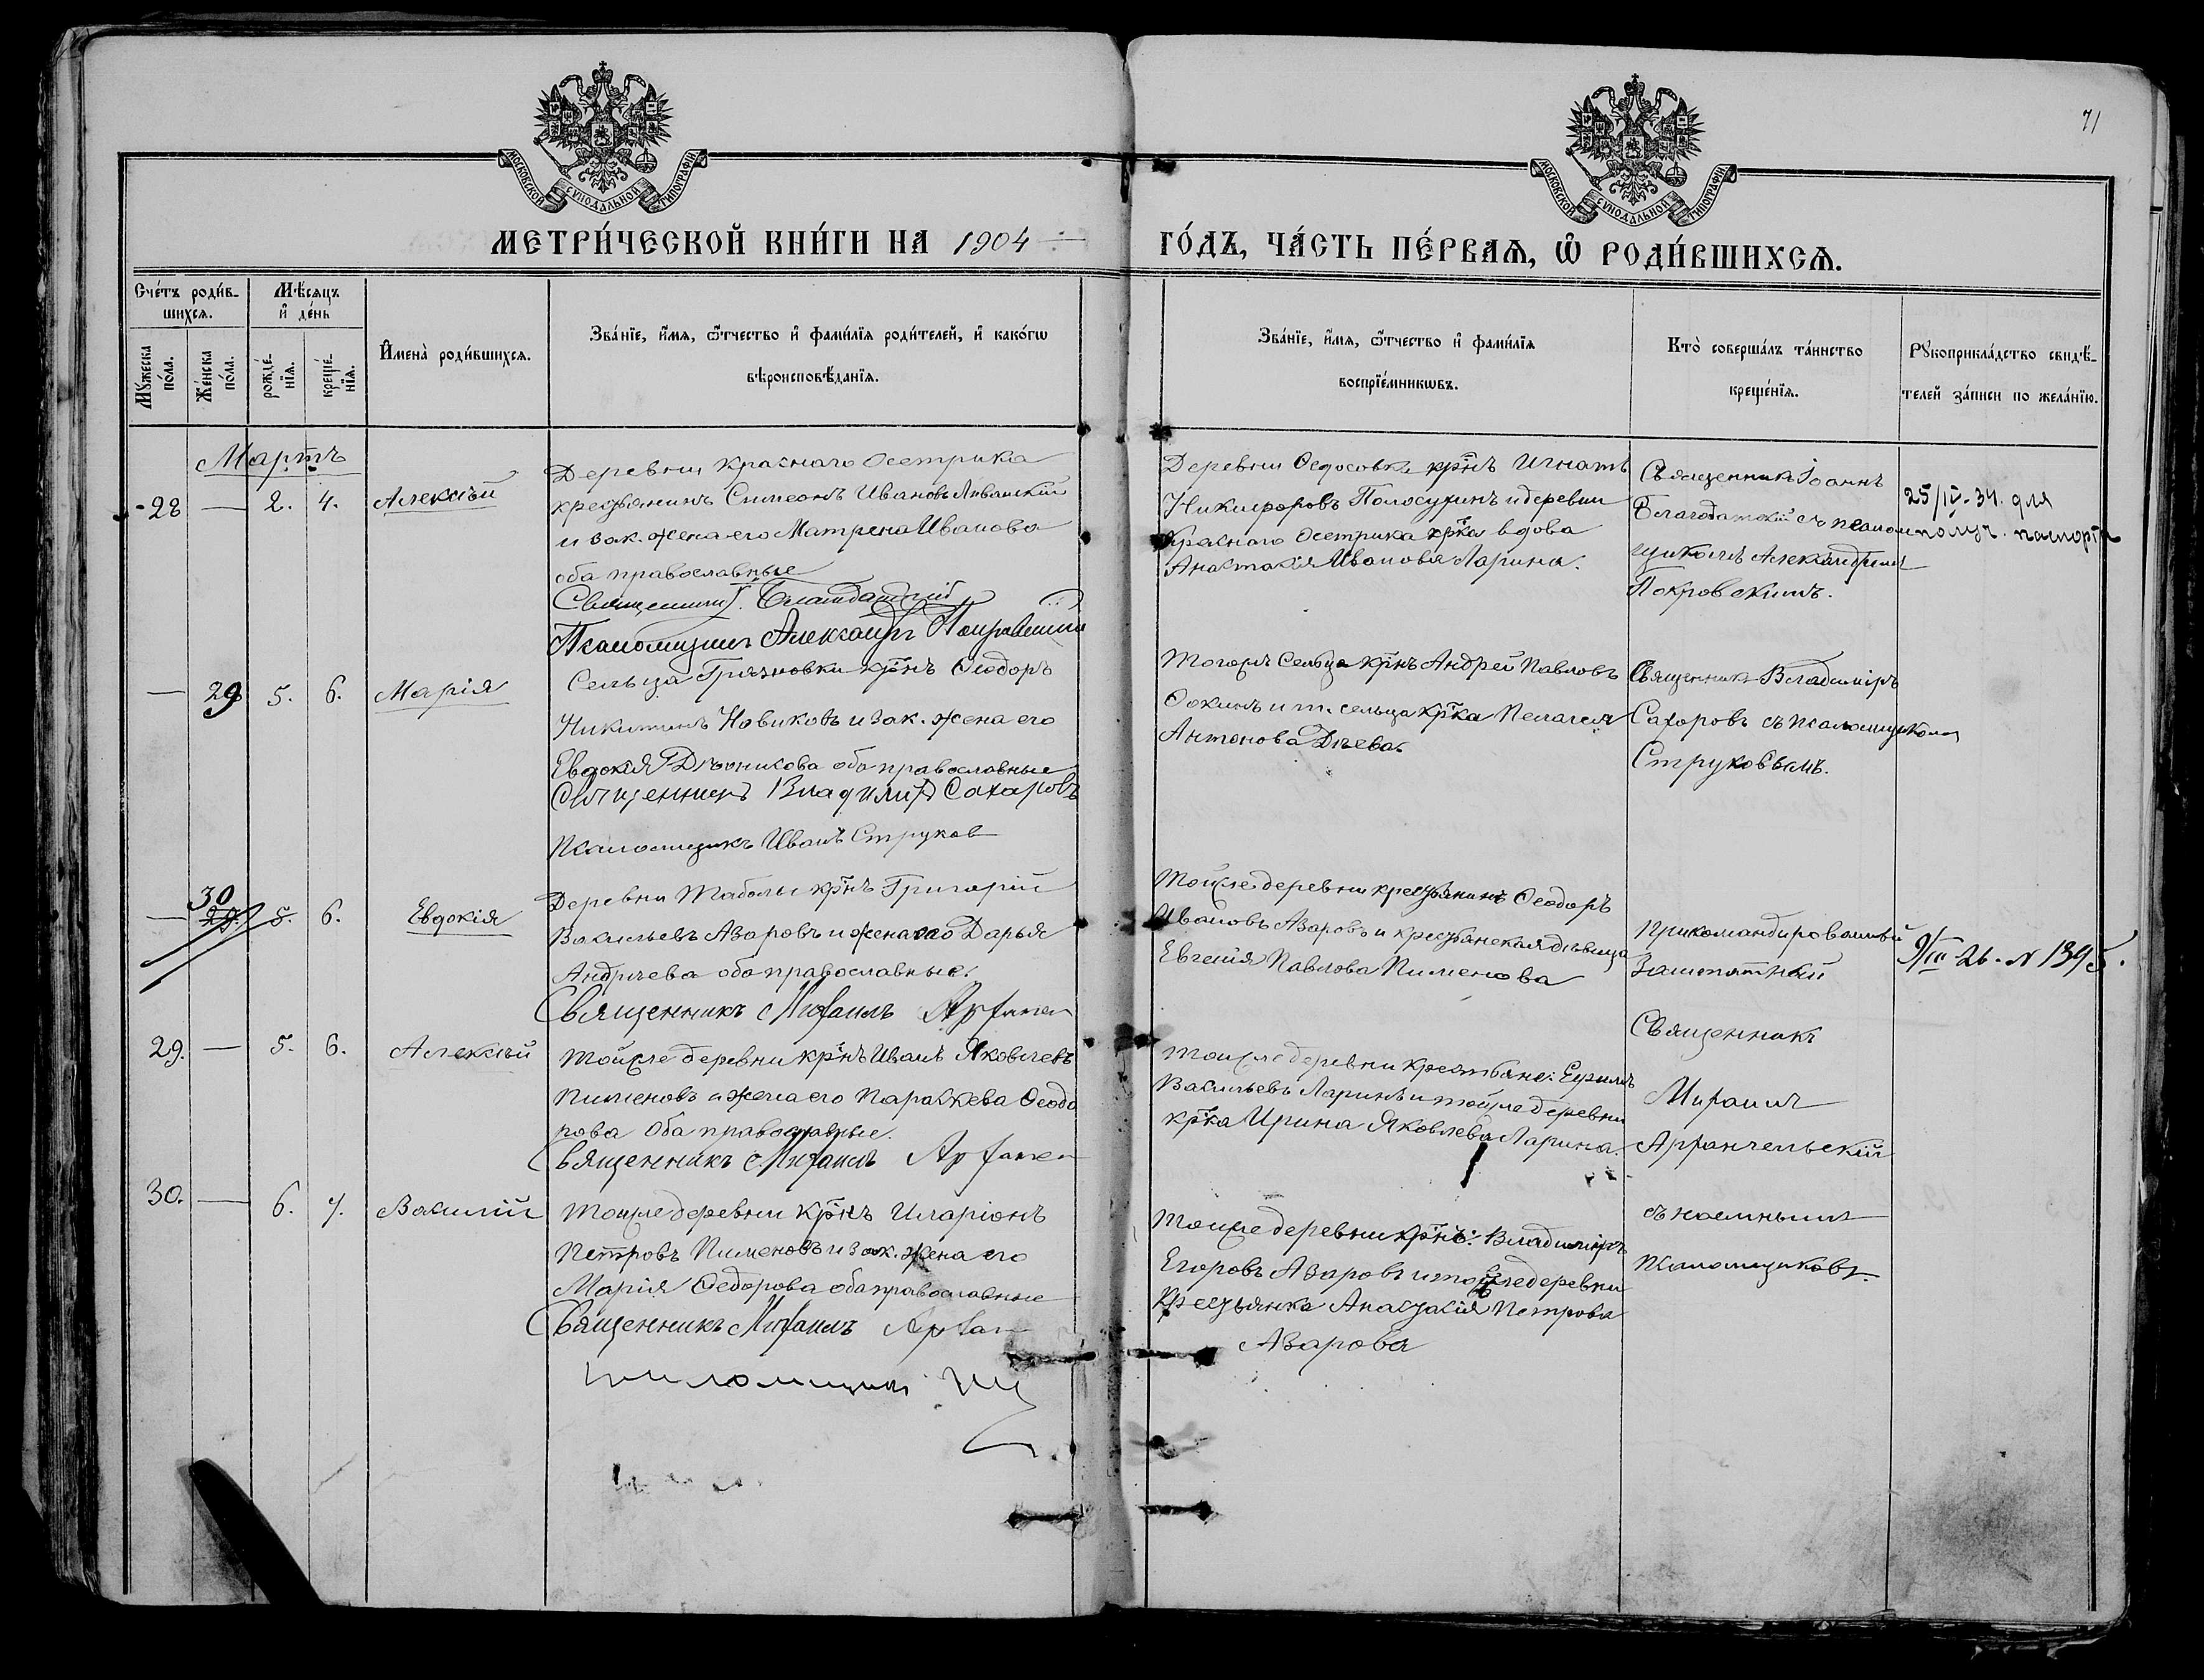 71
МОСКОВСКОЙ СУНОДАЛЬНОЙ ТИПОГРАФІИ
МОСКОВСКОЙ СУНОДАЛЬНОЙ ТИПОГРАФІИ
МЕТРИ́ЧЕСКОЙ КНИ́ГИ НА 1904
ГО́ДЪ, ЧА́СТЬ ПЕ́РВАѦ, Ѡ РОДИ́ВШИХСѦ.
Сче́тъ роди́в-
шихсѧ.
Мꙋжеска
по́ла.
Же́нска
по́ла.
Мѣ́сѧцъ
и҆ де́нь
рожде́-
нїѧ.
креще́-
нїѧ.
И҆мена̀ роди́вшихсѧ.
Зва́нїе, и҆́мѧ, ѻ҆́тчество и҆ фами́лїѧ роди́телей, и҆ како́гѡ
вѣроисповѣ́данїѧ.
Зва́нїе, и҆́мѧ, ѻ҆́тчество и҆ фами́лїѧ
воспрїе́мникѡвъ.
Кто̀ соверша́лъ та́инство
креще́нїѧ.
Рꙋкоприкла́дство свидѣ́-
телей за́писи по жела́нїю.
Мартъ
28 — 2. 4. Алексѣй
Деревни Краснаго Осетрика
крестьянинъ Симеонъ Ивановъ
и зак. жена его Матрена Иванова
оба православные
Священникъ І. Благодатскій
Псаломщикъ Александръ Покровскій
Деревни Ѳедосовки кр̃нъ Игнатъ
Никифоровъ Полосухинъ и деревни
Краснаго Осетрика кр̃ка вдова
Анастасія Иванова Ларина.
Священникъ Іоаннъ
Благодатскій съ псалом
щикомъ Александромъ
Покровскимъ.
25/IV-34. для
получ. паспорта
— 29 5. 6. Марія
Сельца Грязновки кр̃нъ Ѳеодоръ
Никитинъ Новиковъ и зак. жена его
Евдокія оба православные
Священникъ Владимиръ Сахаровъ
Псаломщикъ Иванъ Струков
Тогожъ Сельца кр̃нъ Андрей Павловъ
Ѳокинъ и т. сельца кр̃ка Пелагея
Антонова Дѣева.
Священникъ Владиміръ
Сахаровъ съ псаломщикомъ
Струковымъ.
30
— 29. 5. 6. Евдокія
Деревни Таболы кр̃нъ Григорій
Васильевъ Азаровъ и жена его Дарья
Андреева оба православные.
Священникъ Михаилъ Архан
Тойже деревни крестьянинъ Ѳеодоръ
Ивановъ Азаровъ и крестьянская дѣвица
Евгенія Павлова Пименова
Прикомандированный
Заштатный
9/III-26. N 1395.
29. — 5. 6. Алексѣй
Тойже деревни кр̃нъ Иванъ Яковлевъ
Пименовъ и жена его Параскева Ѳеодо
рова Оба православные.
Священникъ Михаилъ Архан
Тойже деревни Крестьяне: Ефимъ
Васильевъ Ларинъ и тойже деревни
кр̃ка Ирина Яковлева Ларина.
Священникъ
Михаилъ
Архангельскій
30. — 6. 7. Василій
Тойже деревни Кр̃нъ Иларіонъ
Петровъ Пименовъ и зак. жена его
Марія Ѳедорова оба православные
Священникъ Михаилъ Архан
Псаломщикъ
Тойже деревни кр̃нъ: Владиміръ
Егоровъ Азаровъ и тойже деревни
Крестьянка Анастасія Петрова
Азарова
съ наемнымъ
псаломщикомъ.